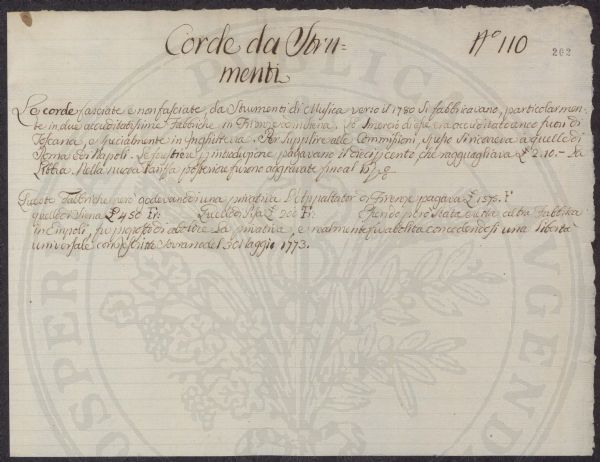 Corde da Stru=
menti
N.° 110
202
Le corde fasciate e non fasciate, da Strumenti di Musica verso il 1780 si fabbricavano, particolarmen-
te in due accreditatissime Fabbriche in Firenze e in Siena. Lo smercio di esse era accreditato anco fuori di
Toscana, e specialmente in Inghilterra. Per supplire alle Commissioni, spesso si ricorreva a quelle di
Roma e di Napoli. Le forestiere p introduzione pagavano il dieci p cento che ragguagliava £ 2.10.- la
Libbra. Nella nuova Tariffa poi furono aggravate fino al 15 p %
Queste Fabbriche però godevano di una privativa. L'Appaltator di Firenze pagava £ 1575. P
quello di Siena £ 450 Quello di Pisa £ 200 Essendo però stata eretta altra Fabbrica
in Empoli, fu proposto di abolire la privativa, e realmente fu abolita concedendosi una libertà
universale con Rescritto Sovrano de' 13 Maggio 1773.
PUBLICAE
AUGENDAE
PROSPERITATI